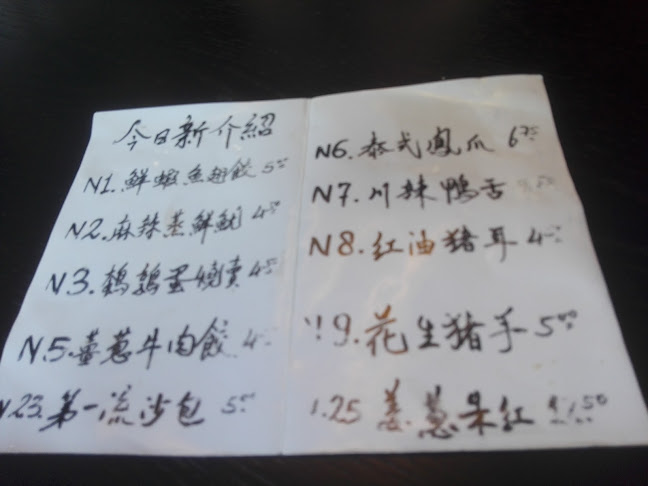 今日新介紹
N1.鮮蝦魚翅餃 5.00
N2.麻辣蒸鮮魷 4.50
N3.鵪鶉蛋燒賣 4.50
N.5.薑蔥牛肉餃 4
N23.第一流沙包 5.00
N6.泰式鳳爪 6.75
N7.川辣鴨舌
N8.红油猪耳 4
N9.花生猪手 5.00
25 姜.蔥 红